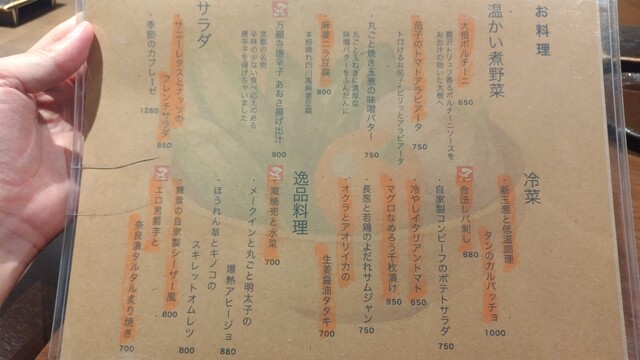 お料理
温かい煮野菜
大根ポルチーニ 650
贅沢トリュフ香るポルチーニソースを
お出汁の効いた大根へ
茄子のトマトアラビアータ 750
トロけるお茄子にピリッとアラビアータ
・丸ごと焼き玉葱の味噌バター 750
丸ごと玉ねぎに濃厚な
味噌バターをふんだんに
麻婆ニラ豆腐 800
本格痺れ四川風麻婆豆腐
万願寺唐辛子 あおさ揚げ出汁 900
京都の名物
辛味の少ない食べ応えのある
唐辛子を揚げちゃいました
サラダ
・サニーレタスとナッツの
フレンチサラダ 850
・季節のカプレーゼ 1280
冷菜
新玉葱と低温調理
タンのカルパッチョ 1000
合法レバ刺し 880
・自家製コンビーフのポテトサラダ 750
・冷やしイタリアントマト 650
マグロなめろう千枚漬け 950
・長葱と若鶏のよだれサムジャン 750
オクラとアオリイカの
生姜醤油タタキ 700
逸品料理
焼売と水菜 700
・メークインと丸ごと明太子の
爆熱アヒージョ 880
・ほうれん草とキノコの
スキレットオムレツ 800
舞茸の自家製シーザー風 800
エロ男爵芋と
奈良漬タルタル炙り焼き 700